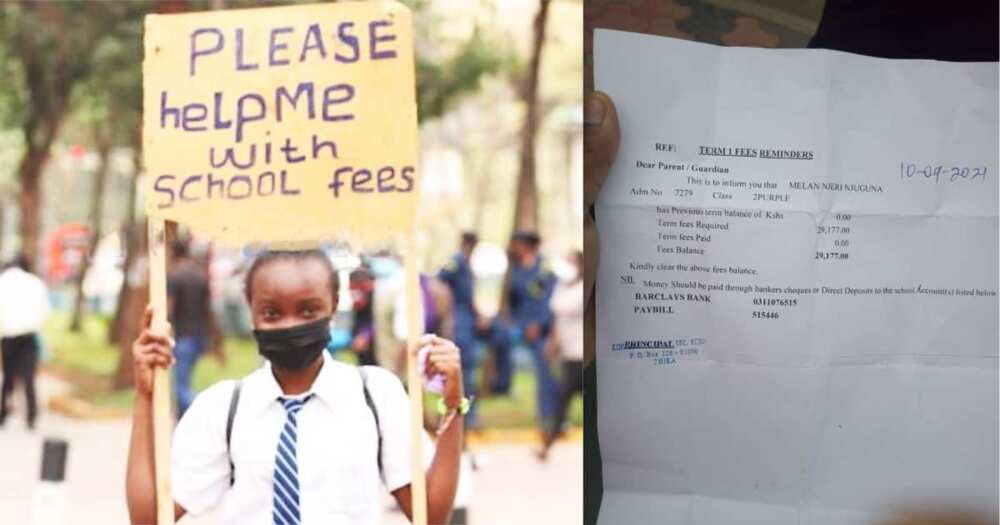 PLEASE
helpME
with
SCHOOL fees
REF: TERM 1 FEES REMINDERS
10-09-2021
Dear Parent / Guardian
This is to inform you that MELAN NJERI NJUGUNA
Adm No 7279 Class 2PURPLE
has Previous term balance of Kshs 0.00
Term fees Required 29,177.00
Term fees Paid 0.00
Fees Balance 29,177.00
Kindly clear the above fees balance.
NB. Money Should be paid through bankers cheques or Direct Deposits to the school Account(s) listed below
BARCLAYS BANK 0311076515
PAYBILL 515446
PRINCIPAL
P. O. Box
THIKA